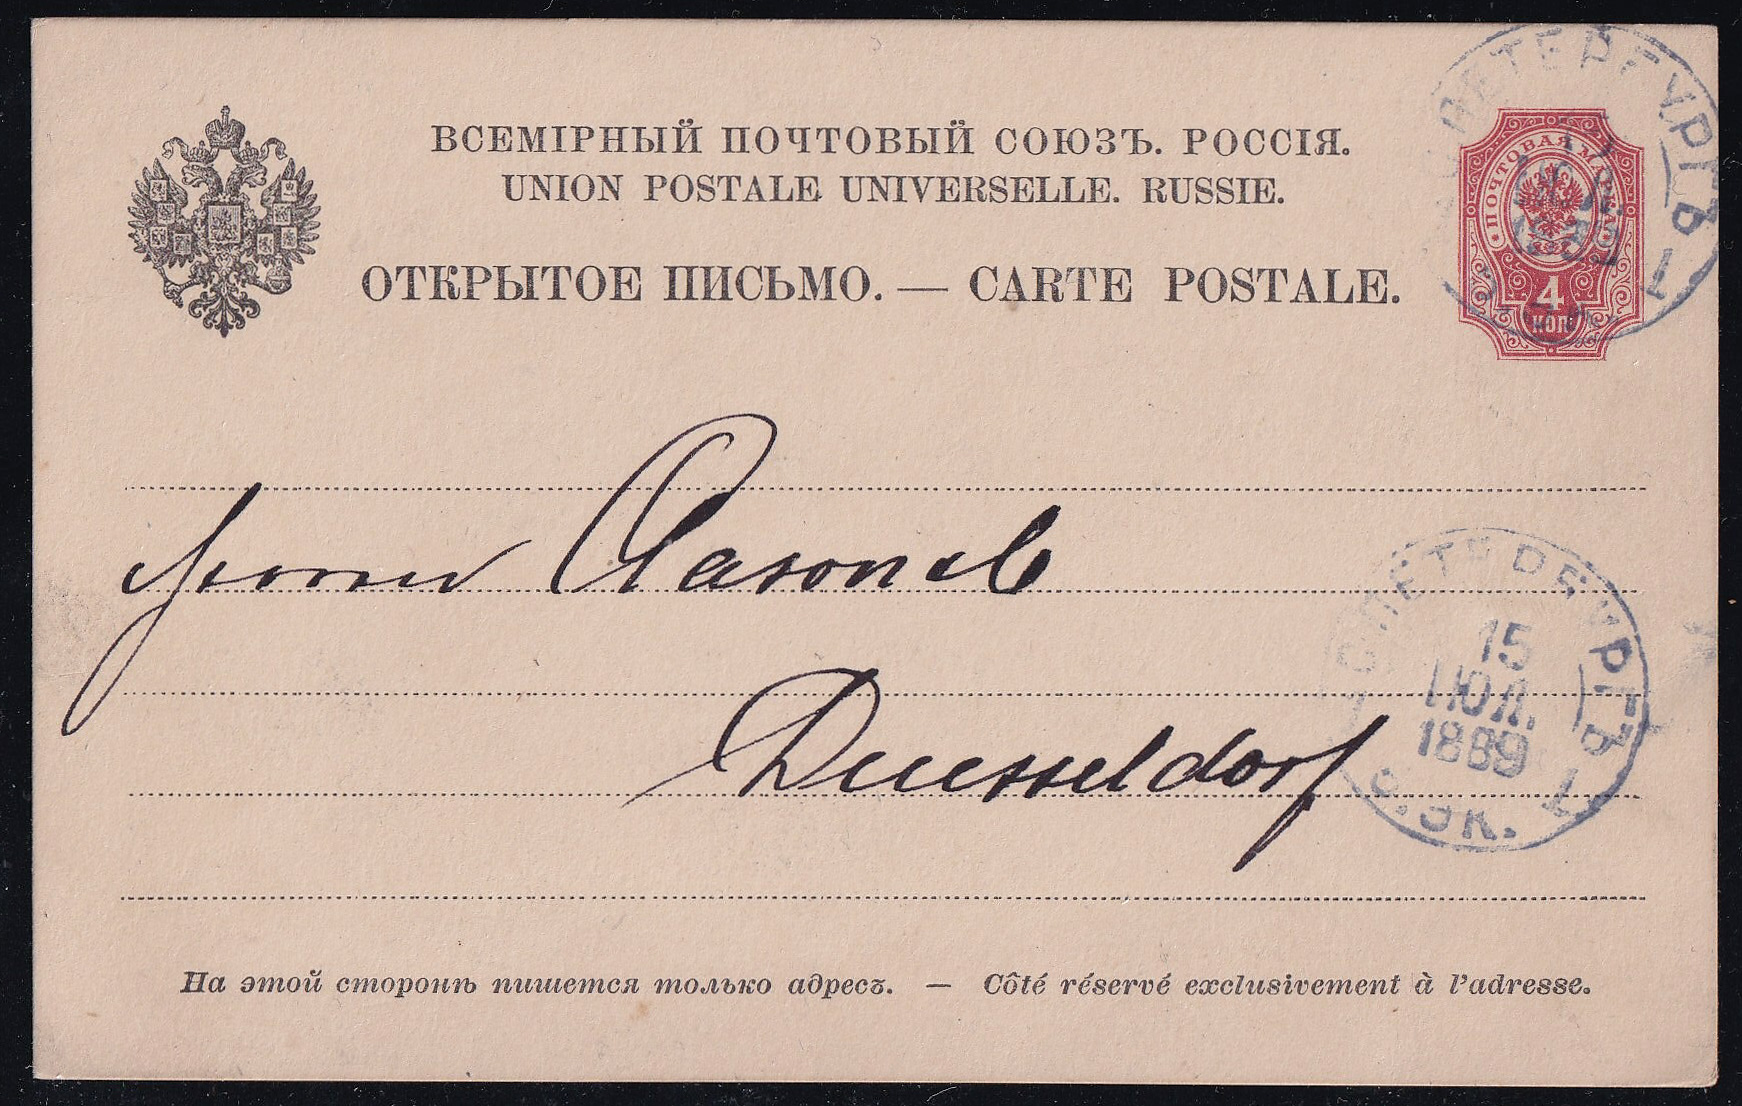 ВСЕМІРНЫЙ ПОЧТОВЫЙ СОЮЗЪ. РОССІЯ.
UNION POSTALE UNIVERSELLE. RUSSIE.
ОТКРЫТОЕ ПИСЬМО. — CARTE POSTALE.
ПОЧТОВАЯ МАРКА
4
КОП
С.ПЕТЕРБУРГЪ 1
Duesseldorf
С.ПЕТЕРБУРГЪ 1
15
ІЮЛ.
1889
На этой сторонѣ пишется только адресъ. — Côté réservé exclusivement à l'adresse.